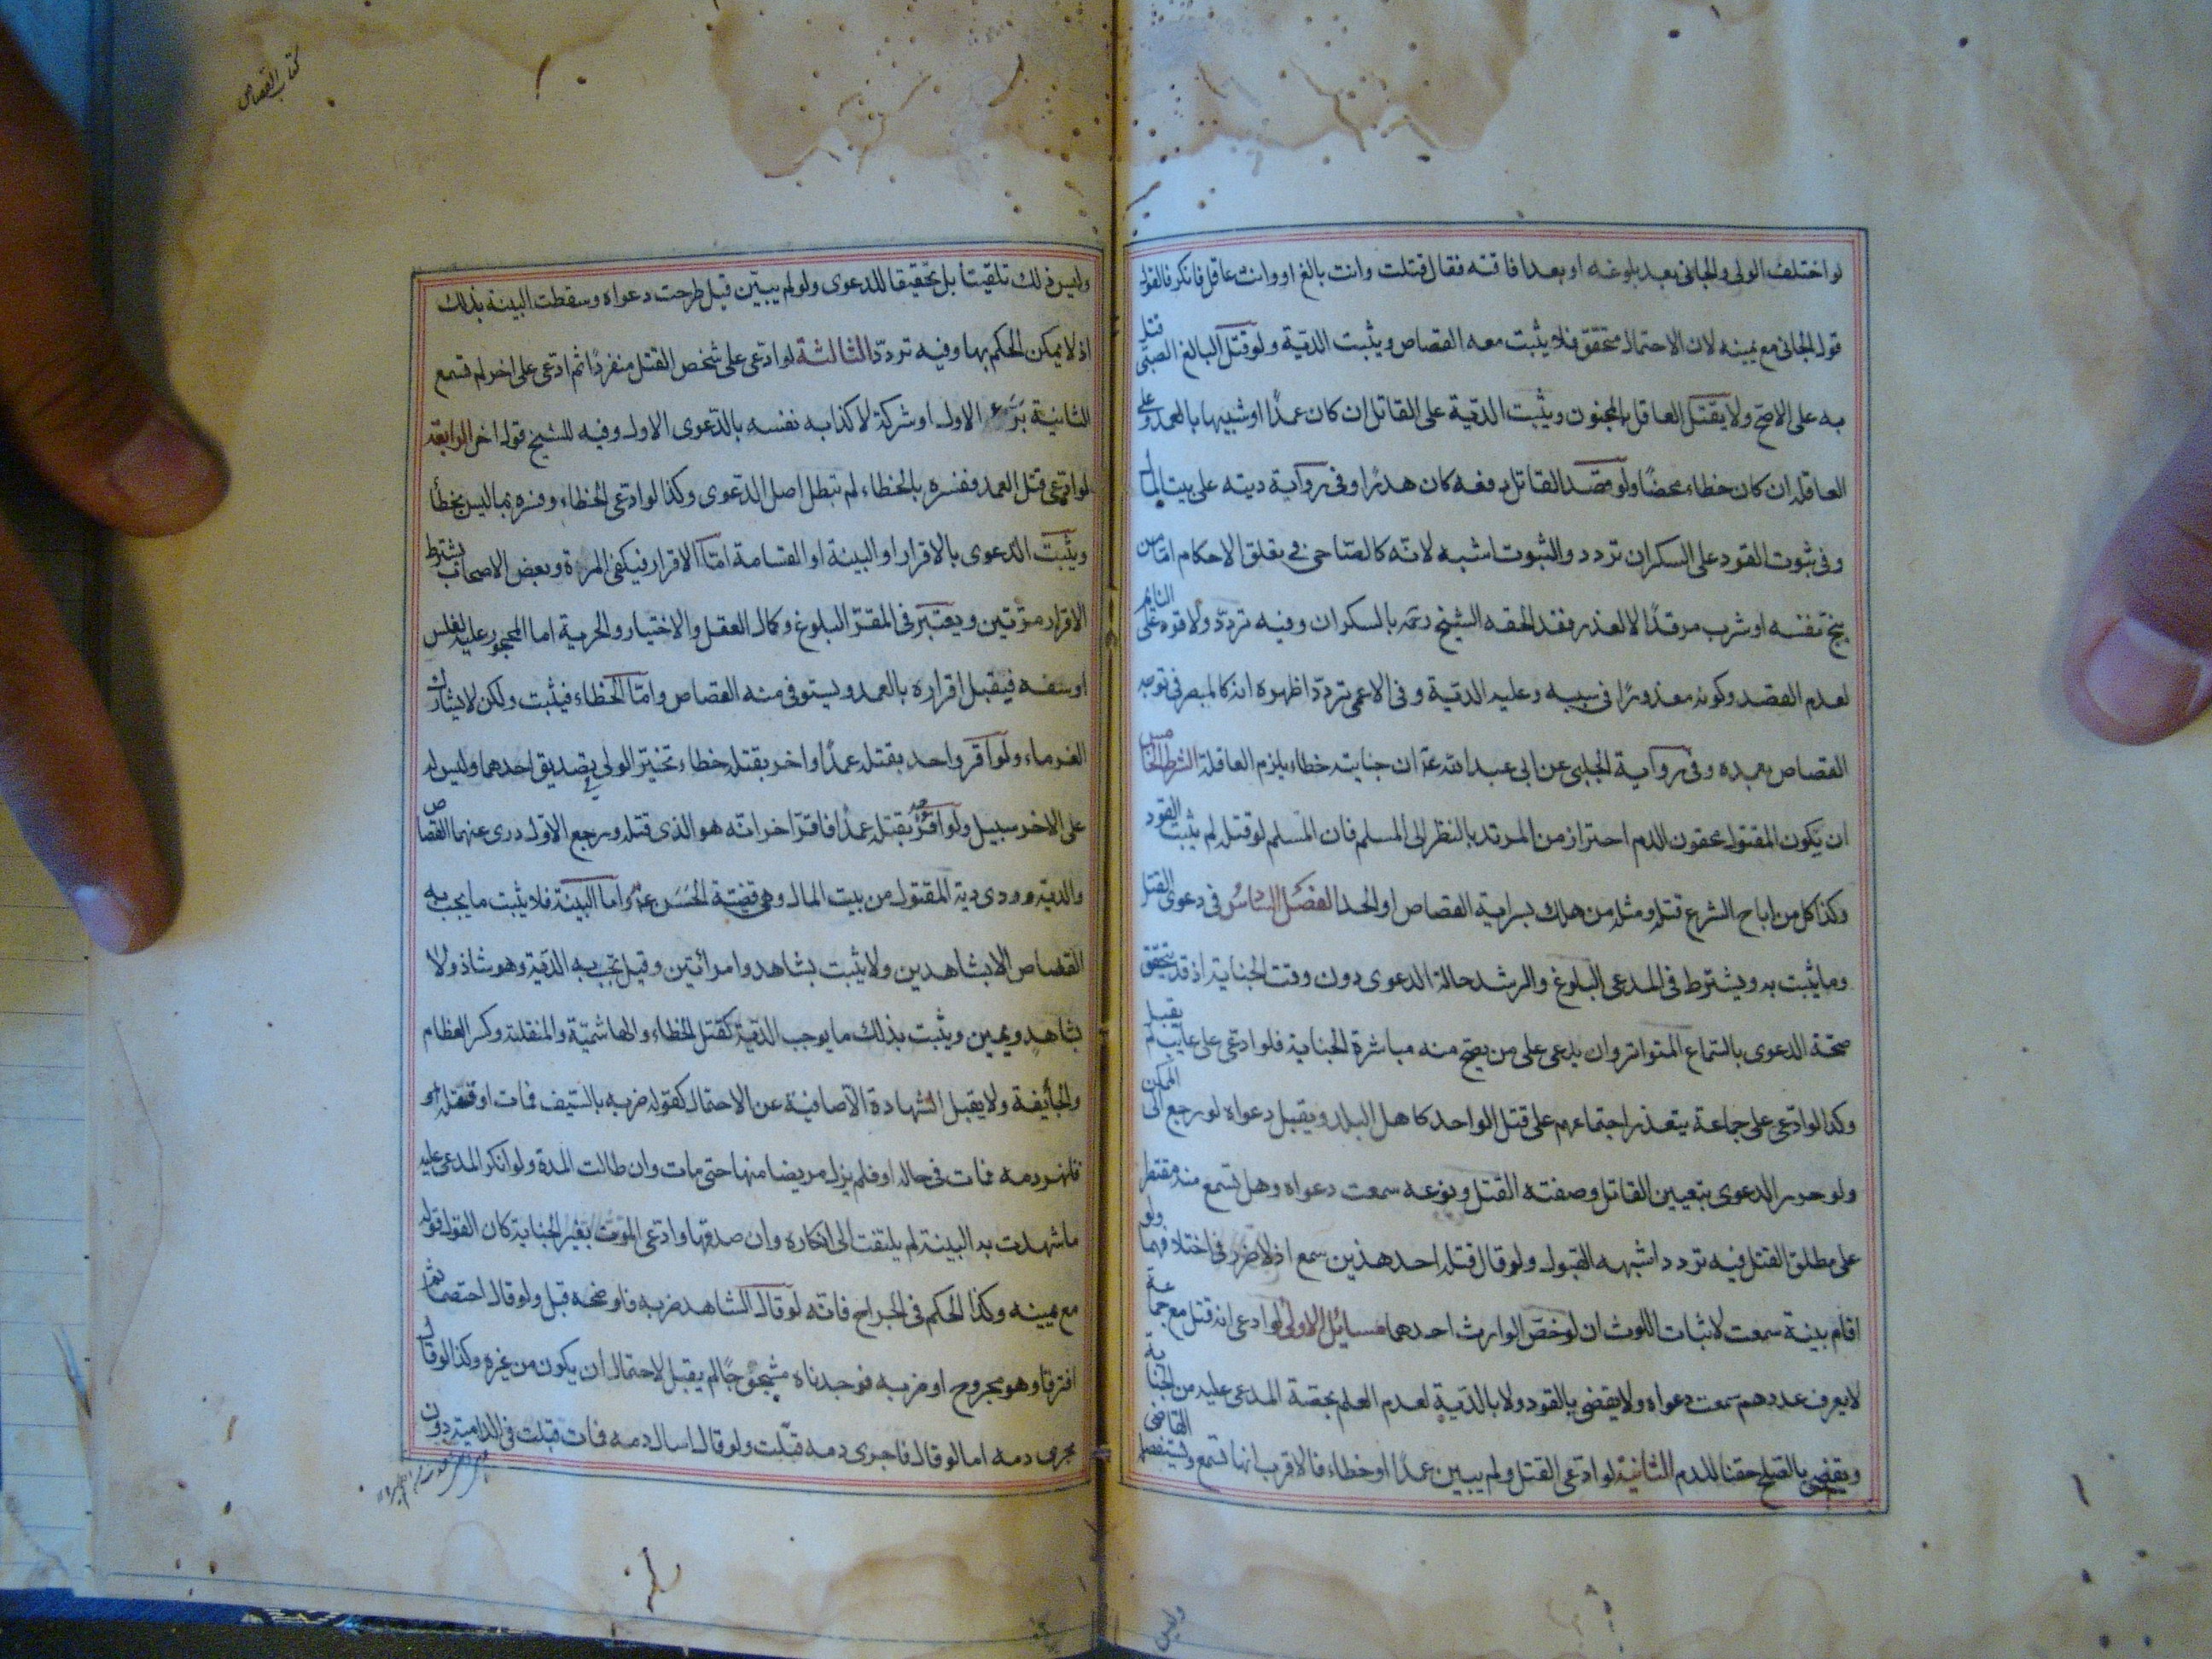 لو اختلف الولى والجانى بعد بلوغه او بعد افاقته فقال قتلت وانت بالغ او وانت عاقل فانكر فالقول
قول الجانى مع يمينه لان الاحتمال متحقق فلا يثبت معه القصاص ويثبت الدية ولو قتل البالغ الصبى قتل
به على الاصح ولا يقتل العاقل بالمجنون ويثبت الدية على القاتل ان كان عمدا او شبيها بالعمد وعلى
العاقلة ان كان خطاء محضا ولو قصد القاتل دفعه كان هدرا وفى رواية ديته على بيت المال
وفى ثبوت القود على السكران تردد والثبوت اشبه لانه كالصاحى فى تعلق الاحكام اما من
بنج نفسه او شرب مرقدا لا لعذر فقد الحقه الشيخ ره بالسكران وفيه تردد ولا قود على النايم
لعدم القصد وكونه معذورا فى سببه وعليه الدية وفى الاعمى تردد اظهره انه كالمبصر فى توجه
القصاص بعمده وفى رواية الحلبى عن ابى عبد الله ع ان جنايته خطاء يلزم العاقلة الشرط الخامس
ان يكون المقتول محقون الدم احتراز من المرتد بالنظر الى المسلم فان المسلم لو قتله لم يثبت القود
وكذا كل من اباح الشرع قتله ومثله من هلك بسراية القصاص او الحد الفصل السادس فى دعوى القتل
وما يثبت به ويشترط فى المدعى البلوغ والرشد حالة الدعوى دون وقت الجناية اذ قد يتحقق
صحة الدعوى بالسماع المتواتر وان يدعى على من يصح منه مباشرة الجناية فلو ادعى على غايب لم يقبل
وكذا لو ادعى على جماعة يتعذر اجتماعهم على قتل الواحد كاهل البلد ويقبل دعواه لو رجع الى الممكن
ولو حرر الدعوى بتعيين القاتل وصفته القتل ونوعه سمعت دعواه وهل تسمع منه مقتصرا
على مطلق القتل فيه تردد اشبهه القبول ولو قال قتله احد هذين سمع اذ لا ضرر فى اختلافهما ولو
اقام بينة سمعت لاثبات اللوث ان لو خص الوارث احدهما مسائل الاولى لو ادعى انه قتل مع جماعة
لا يعرف عددهم سمعت دعواه ولا يقضى بالقود ولا بالدية لعدم العلم بحصة المدعى عليه من الجناية
ويقضى بالصلح حقنا للدم الثانية لو ادعى القتل ولم يبين عمدا او خطاء فالاقرب انها تسمع ويستفصله القاضى
وليس
كتاب القصاص
وليس ذلك تلقينا بل تحقيقا للدعوى ولو لم يبين قيل طرحت دعواه وسقطت البينة بذلك
اذ لا يمكن الحكم بها وفيه تردد الثالثة لو ادعى على شخص القتل منفردا ثم ادعى على اخر لم تسمع
الثانية برء الاول او شركه لاكذابه نفسه بالدعوى الاولى وفيه للشيخ قول اخر الرابعة
لو ادعى قتل العمد ففسره بالخطاء لم تبطل اصل الدعوى وكذا لو ادعى الخطاء وفسره بما ليس بخطأ
ويثبت الدعوى بالاقرار او البينة او القسامة اما الاقرار فيكفى المرة وبعض الاصحاب يشترط
الاقرار مرتين ويعتبر فى المقر البلوغ وكمال العقل والاختيار والحرية اما المحجور عليه لفلس
او سفه فيقبل اقراره بالعمد ويستوفى منه القصاص واما الخطاء فيثبت ولكن لا يشارك
الغرماء ولو اقر واحد بقتله عمدا واخر بقتله خطاء تخير الولى تصديق احدهما وليس له
على الاخر سبيل ولو اقر بقتله عمدا فاقر اخر انه هو الذى قتله ورجع الاول درى عنهما القصاص
والدية وودى دية المقتول من بيت المال وهى قضية الحسن ع واما البينة فلا يثبت ما يجب به
القصاص الا بشاهدين ولا يثبت بشاهد وامرأتين وقيل تجب به الدية وهو شاذ ولا
بشاهد ويمين ويثبت بذلك ما يوجب الدية كقتل الخطاء والهاشمية والمنقلة وكسر العظام
والجائفة ولا يقبل الشهادة الا صافية عن الاحتمال كقوله ضربه بالسيف فمات او فقتله او
فانهر دمه فمات فى حاله او فلم يزل مريضا منها حتى مات وان طالت المدة ولو انكر المدعى عليه
ما شهدت به البينة لم يلتفت الى انكاره وان صدقها وادعى الموت بغير الجناية كان القول قوله
مع يمينه وكذا الحكم فى الجراح فانه لو قال الشاهد ضربه فاوضحه قبل ولو قال اختصما ثم
افترقا وهو مجروح او ضربه فوجدناه مشجوجا لم يقبل لاحتمال ان يكون من غيره وكذا لو قال
فجرى دمه اما لو قال فاجرى دمه قبلت ولو قال اسال دمه فمات قبلت فى الدامية دون